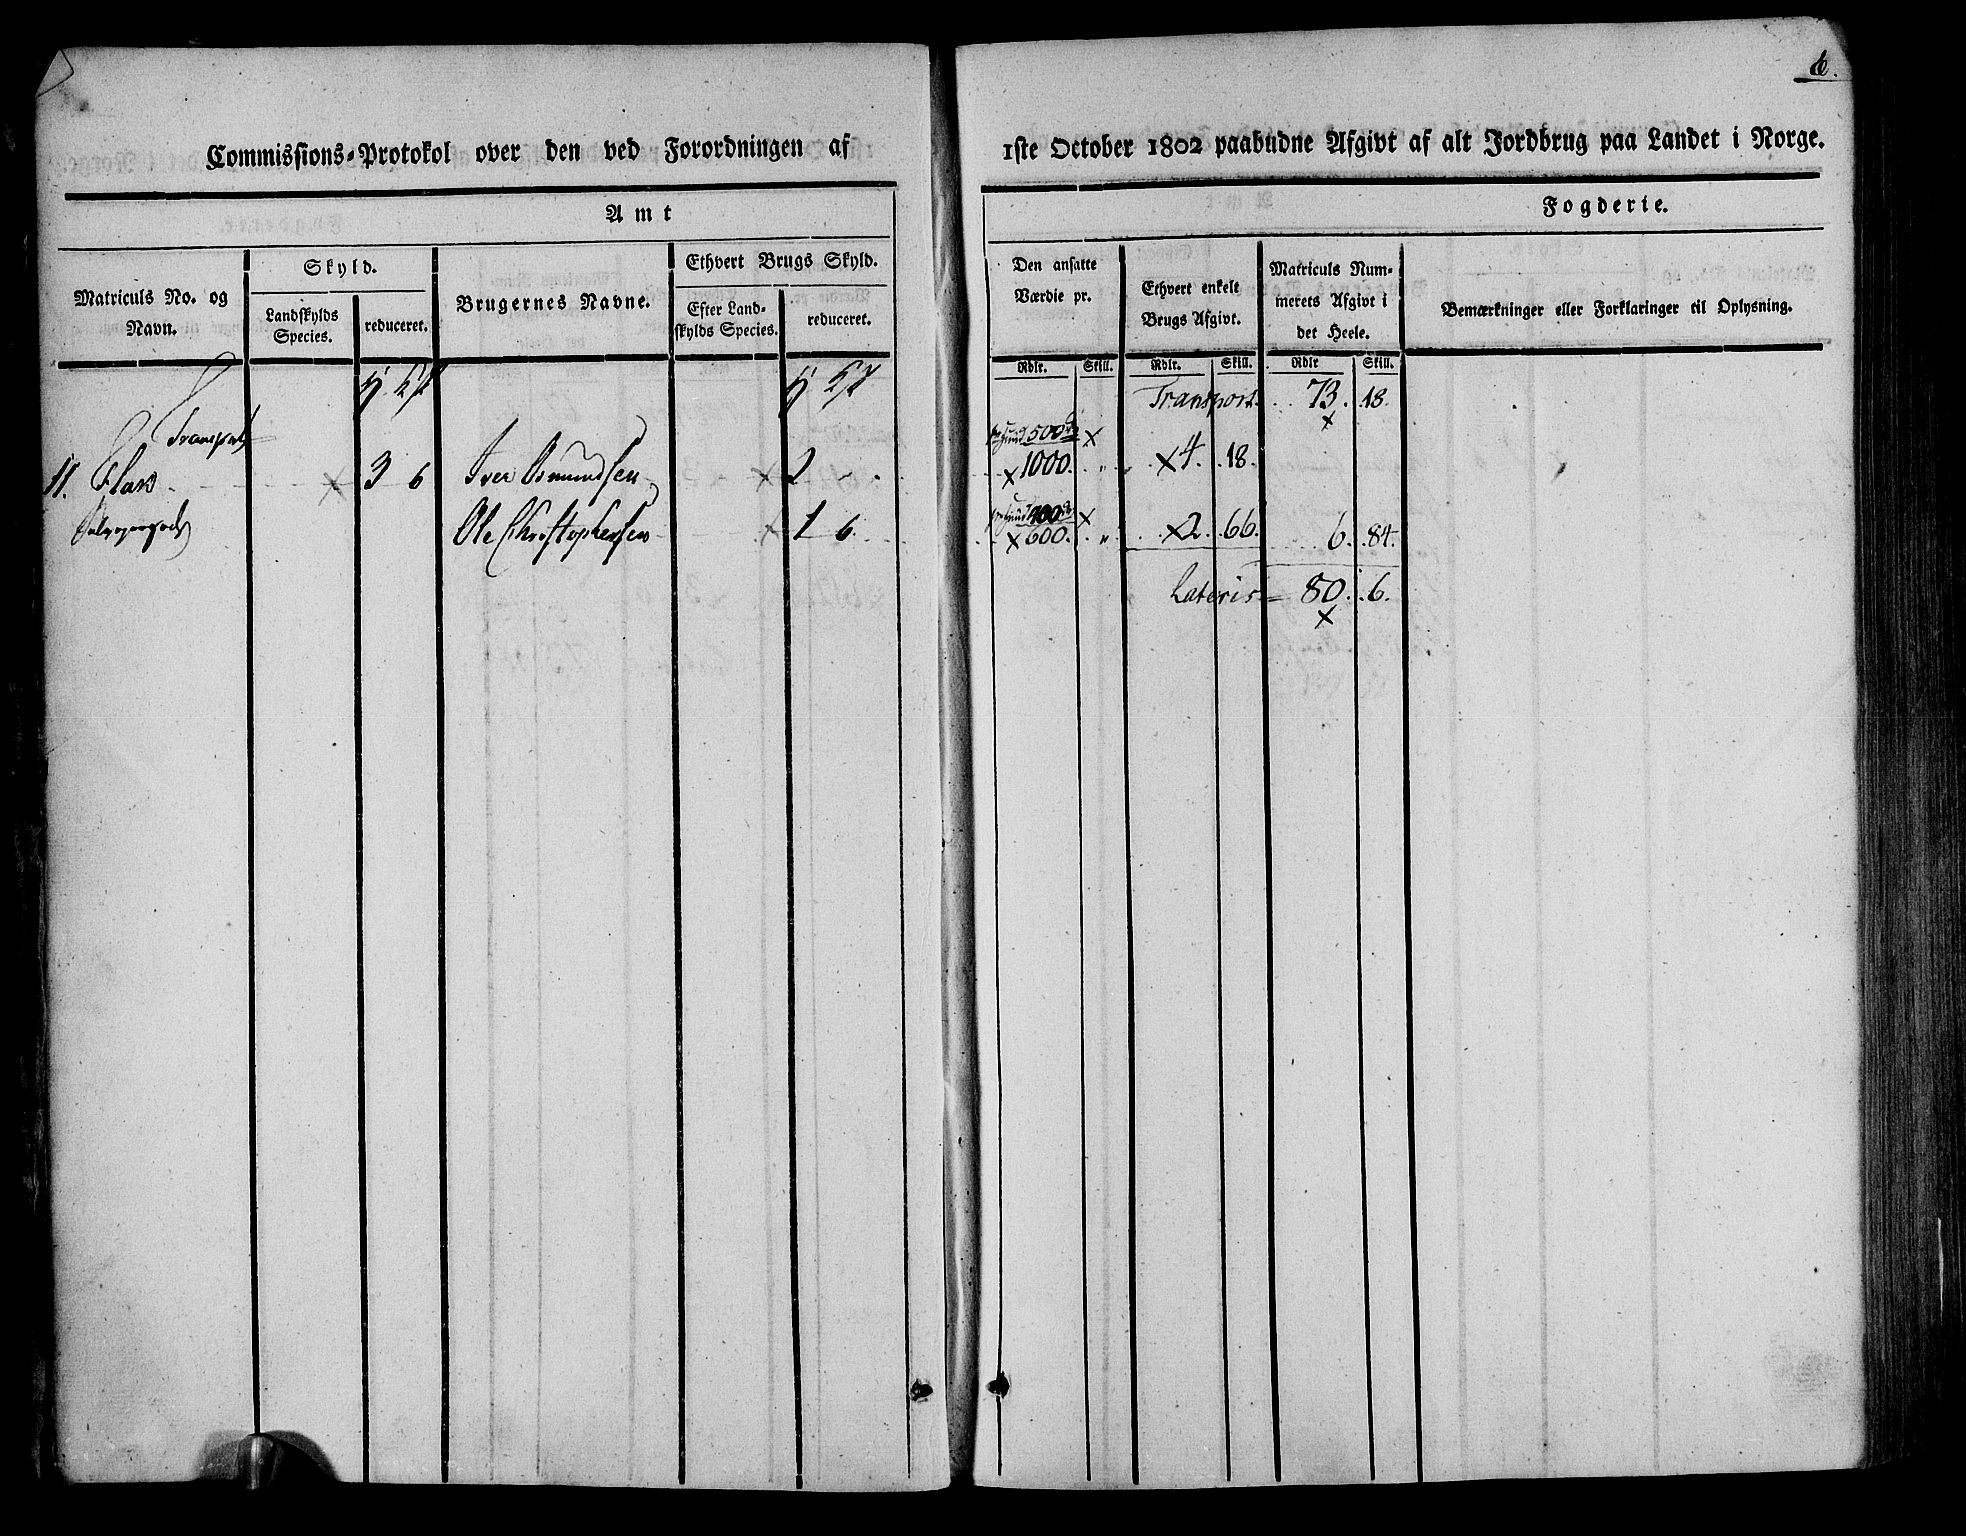 6.
Commissions-Protokol over den ved Forordningen af 1ste October 1802 paabudne Afgivt af alt Jordbrug paa Landet i Norge.
Amt Fogderie.
Matriculs No. og Navn.
Skyld.
Landskylds Species.
reduceret.
Brugernes Navne.
Ethvert Brugs Skyld.
Efter Landskylds Species.
reduceret.
Den ansatte Værdie pr.
Ethvert enkelt Brugs Afgivt.
Matriculs Nummerets Afgivt i det Heele.
Bemærkninger eller Forklaringer til Oplysning.
Rdlr. Skill. Rdlr. Skill. Rdlr Skill.
Transport Transport 73. 18.
500
11. 3 6 Iver Amundsen 2 - 1000. 4. 18.
400
Ole Christophersen 1 6. 600. 2. 66. 6. 84.
Lateris 80. 6.